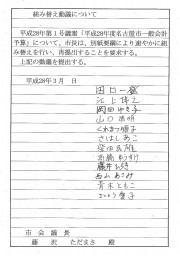 組み替え動議について
平成28年第1号議案「平成28年度名古屋市一般会計
予算」について、市長は、別紙要綱により速やかに組
み替えを行い、再提出することを要求する。
上記の動議を提出する。
平成28年3月　日
田口一登
江上博之
岡田ゆき子
山口清明
くれまつ順子
さはしあこ
柴田民雄
高橋ゆうすけ
藤井ひろき
西山あさみ
青木ともこ
さいとう愛子
市会議長
藤沢ただまさ殿